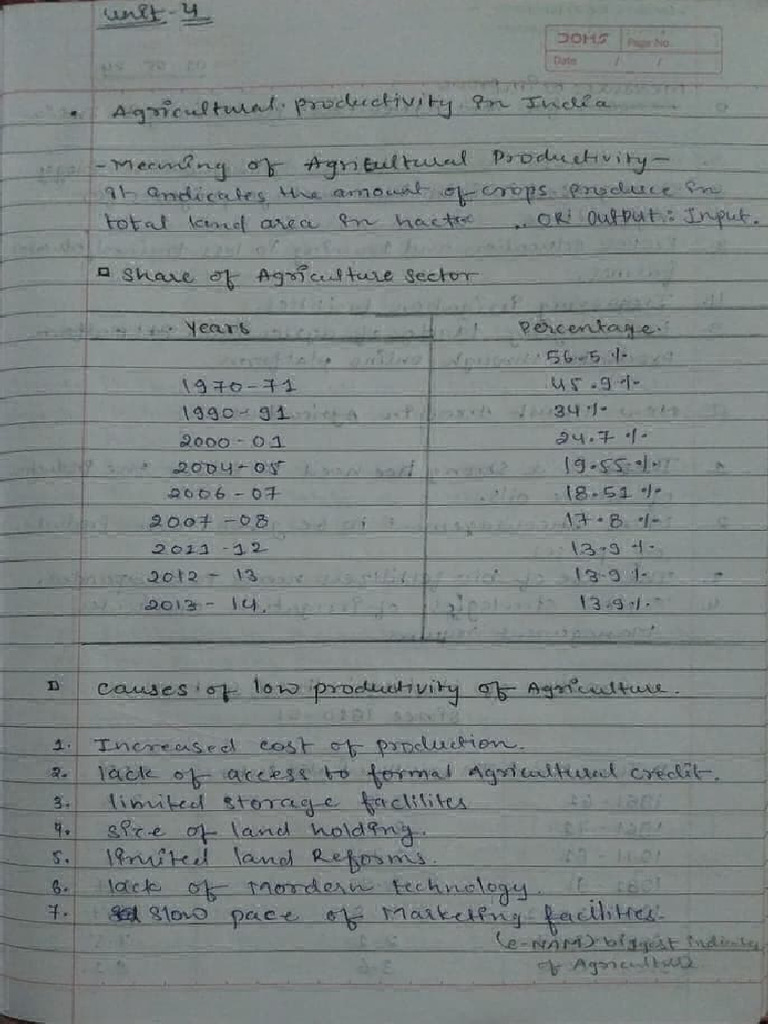 Unit-4
JOMS Page No.
Date / /
• Agricultural Productivity in India
- Meaning of Agricultural Productivity -
It indicates the amount of crops produce in
total land area in hacter .. OR Output : Input.
Share of Agriculture Sector
Years Percentage.
56.5 %
1970-71 45.9 %
1990-91 34 %
2000-01 24.7 %
2004-05 19.55 %
2006-07 18.51 %
2007-08 17.8 %
2011-12 13.9 %
2012-13 13.9 %
2013-14. 13.9 %
Causes of low productivity of Agriculture.
1. Increased cost of production.
2. lack of access to formal Agricultural credit.
3. limited storage facilites
4. size of land holding.
5. limited land Reforms.
6. lack of mordern technology.
7. slow pace of Marketing facilities.
(e-NAM) biggest
of Agriculture